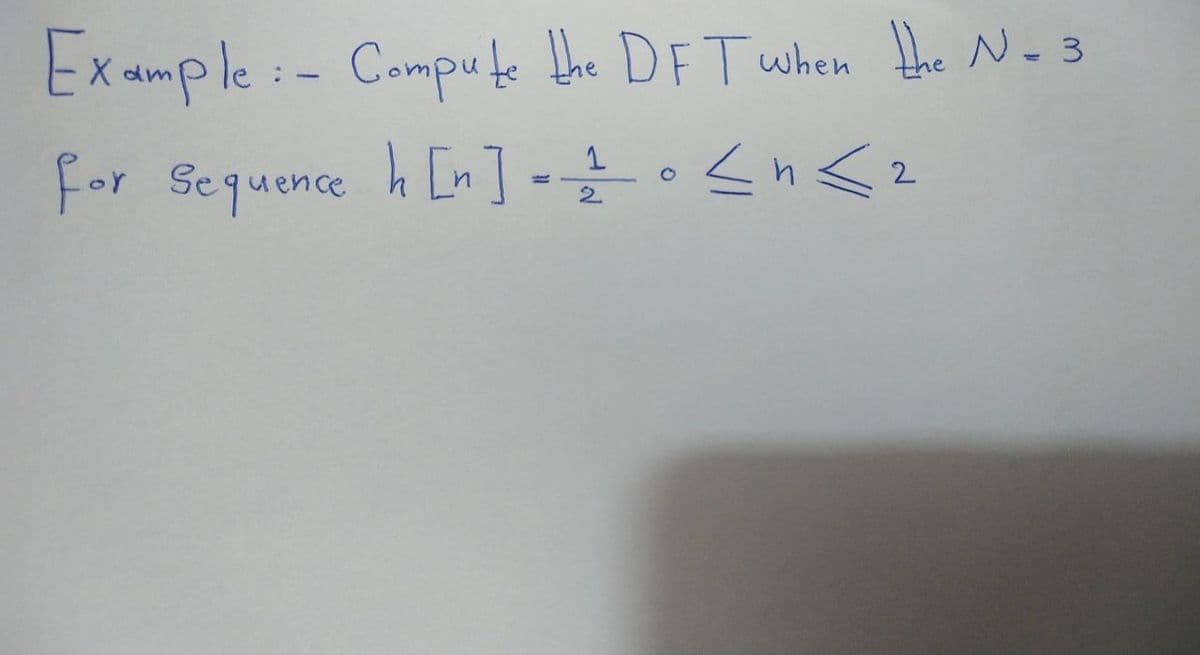 Example :- Compute the DFT when the N = 3
for sequence h [n] = 1/2 0 ≤ n ≤ 2